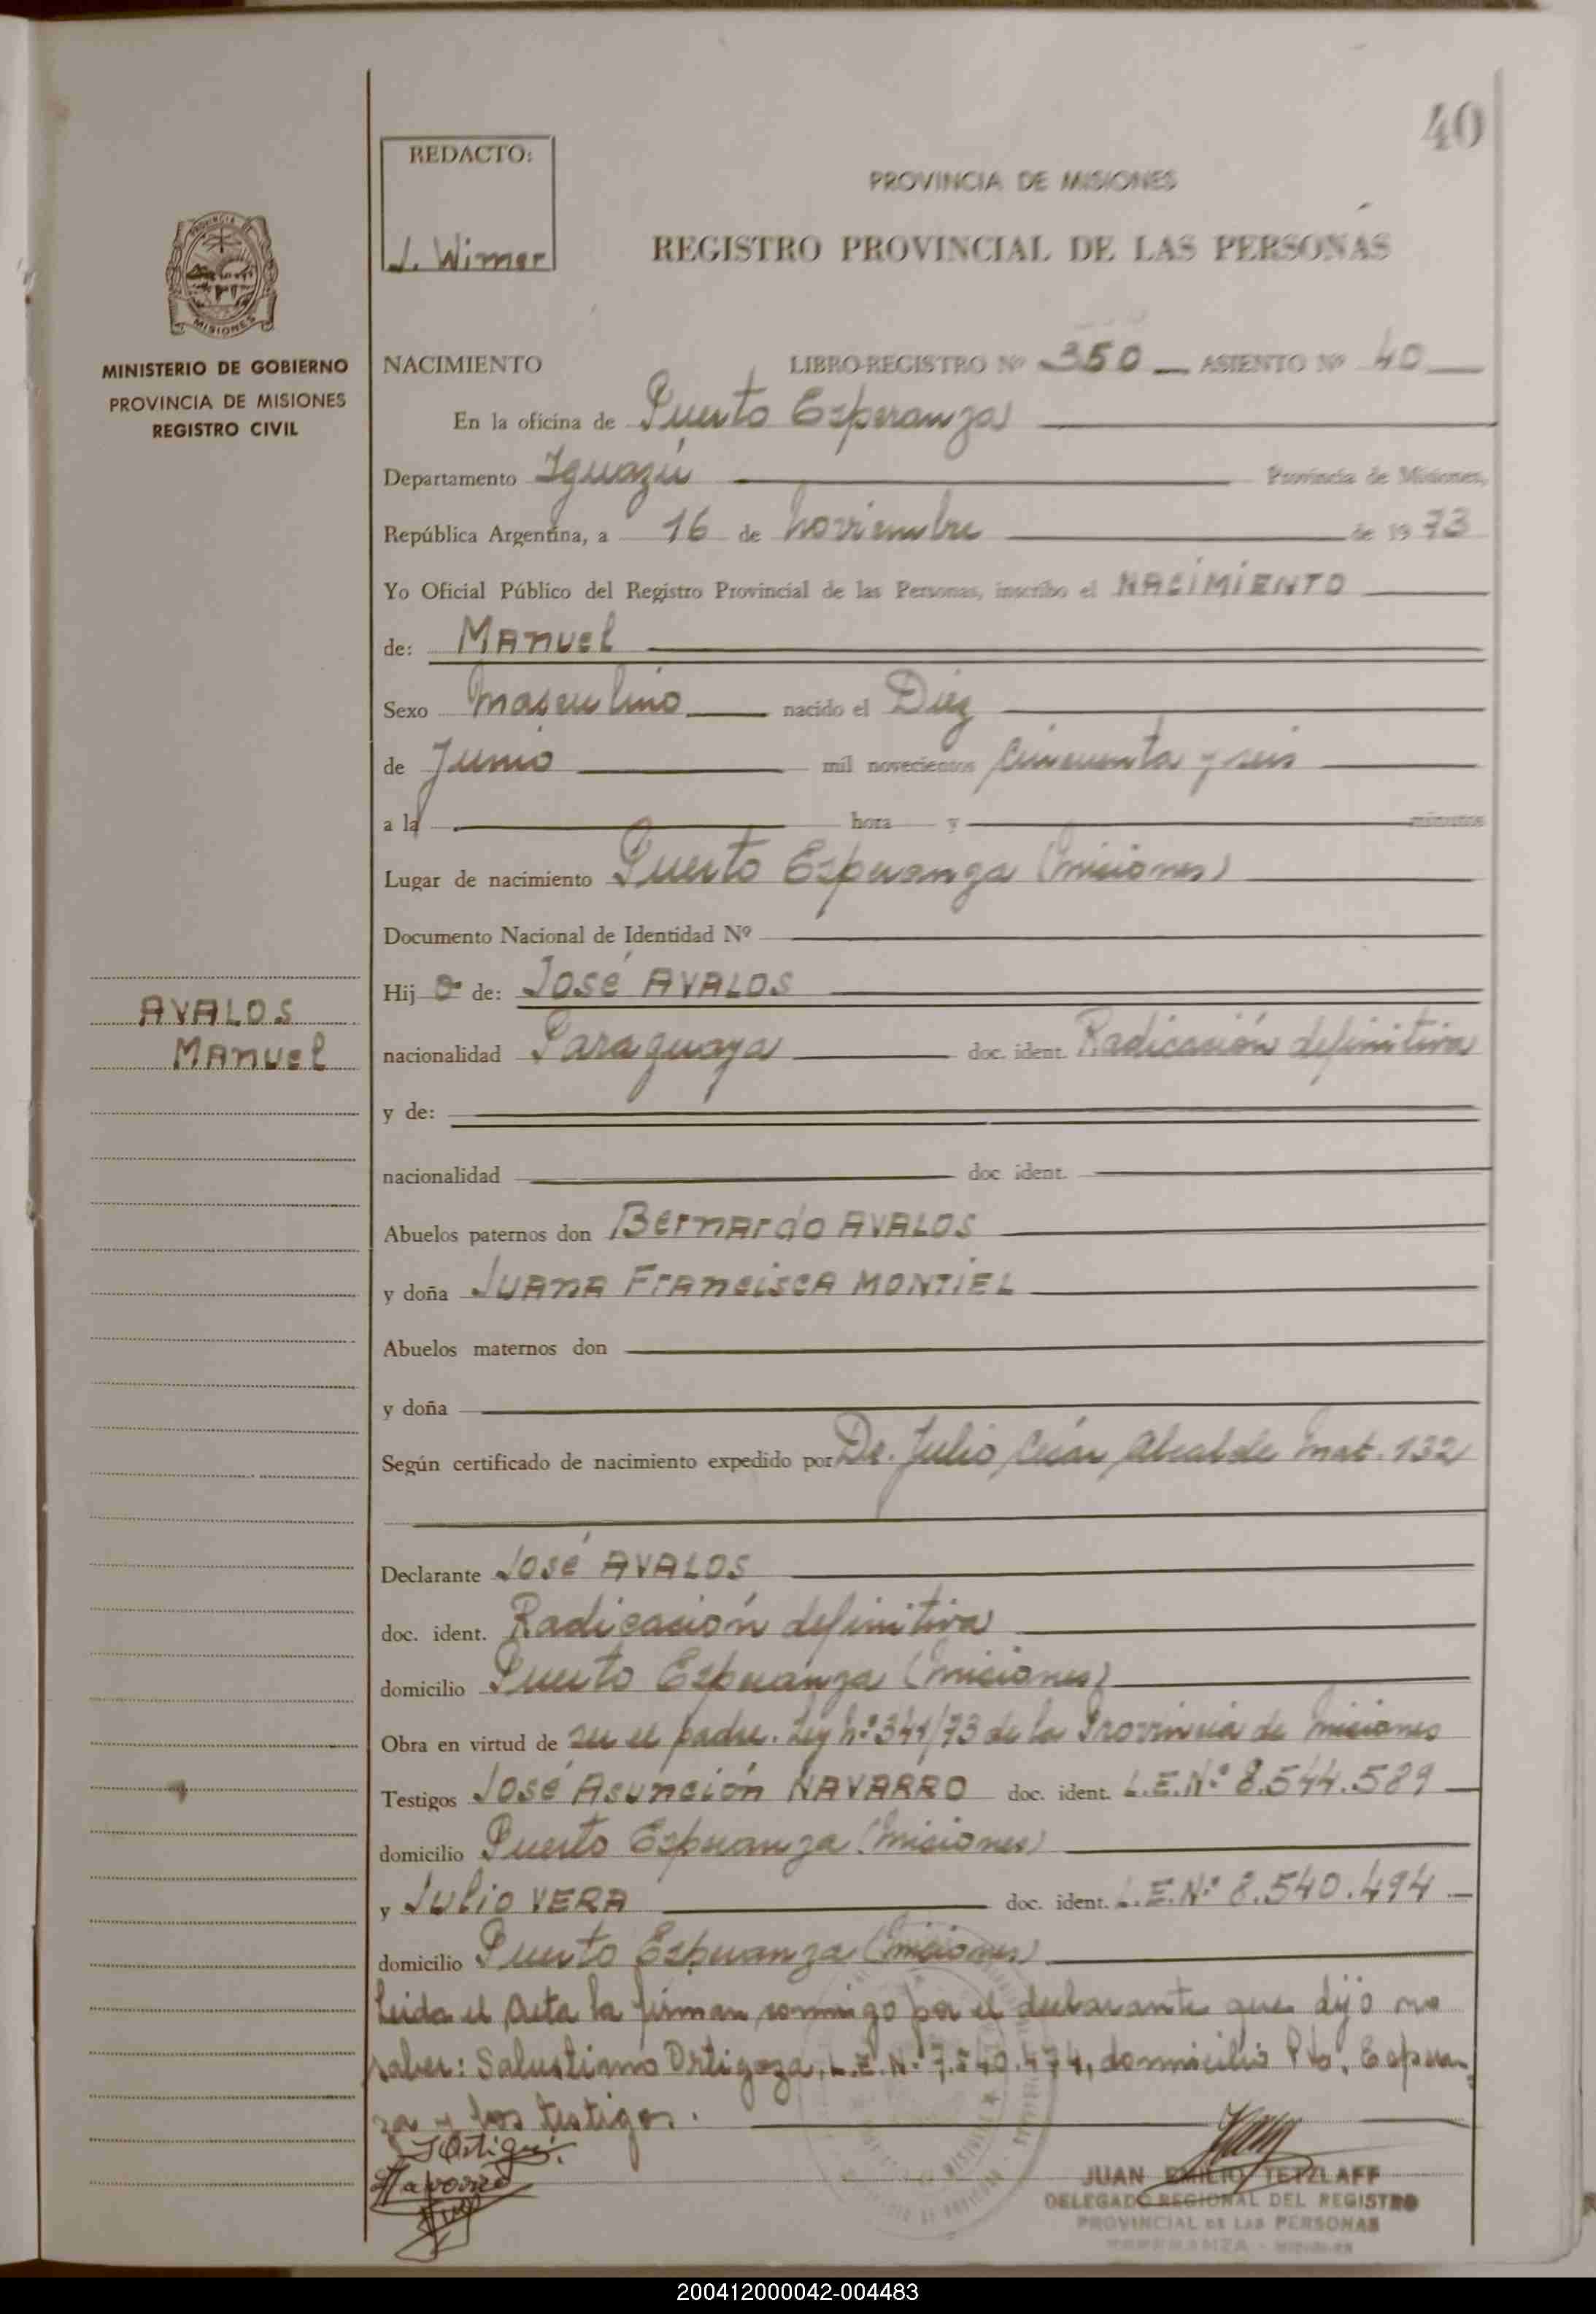 40
REDACTO:
J. Wimer
PROVINCIA DE MISIONES
REGISTRO PROVINCIAL DE LAS PERSONAS
PROVINCIA DE
MISIONES
MINISTERIO DE GOBIERNO
PROVINCIA DE MISIONES
REGISTRO CIVIL
NACIMIENTO LIBRO-REGISTRO Nº 350 ASIENTO Nº 40
En la oficina de Puerto Esperanza
Departamento Iguazú Provincia de Misiones,
República Argentina, a 16 de noviembre de 1973
Yo Oficial Público del Registro Provincial de las Personas, inscribo el NACIMIENTO
de: Manuel
Sexo masculino nacido el Diez
de Junio mil novecientos cincuenta y seis
a la hora y minutos
Lugar de nacimiento Puerto Esperanza (Misiones)
Documento Nacional de Identidad Nº
Hijo de: José AVALOS
AVALOS
Manuel
nacionalidad Paraguaya doc. ident. Radicación definitiva
y de:
nacionalidad doc. ident.
Abuelos paternos don Bernardo AVALOS
y doña Juana Francisca MONTIEL
Abuelos maternos don
y doña
Según certificado de nacimiento expedido por Dr. Julio César Alcalde Mat. 132
Declarante José AVALOS
doc. ident. Radicación definitiva
domicilio Puerto Esperanza (Misiones)
Obra en virtud de ser el padre. Ley Nº 341/73 de la Provincia de Misiones
Testigos José Asunción NAVARRO doc. ident. L.E.Nº 8.544.589
domicilio Puerto Esperanza (Misiones)
y Julio VERA doc. ident. L.E.Nº 8.540.494
domicilio Puerto Esperanza (Misiones)
Leida el Acta la firman conmigo por el declarante que dijo no
saber: Salustiano Ortigoza, L.E.Nº 7.540.474, domicilio Pto. Esperan-
za y los testigos.
Navarro
JUAN EMILIO TETZLAFF
DELEGADO REGIONAL DEL REGISTRO
PROVINCIAL DE LAS PERSONAS
ESPERANZA - MISIONES
200412000042-004483